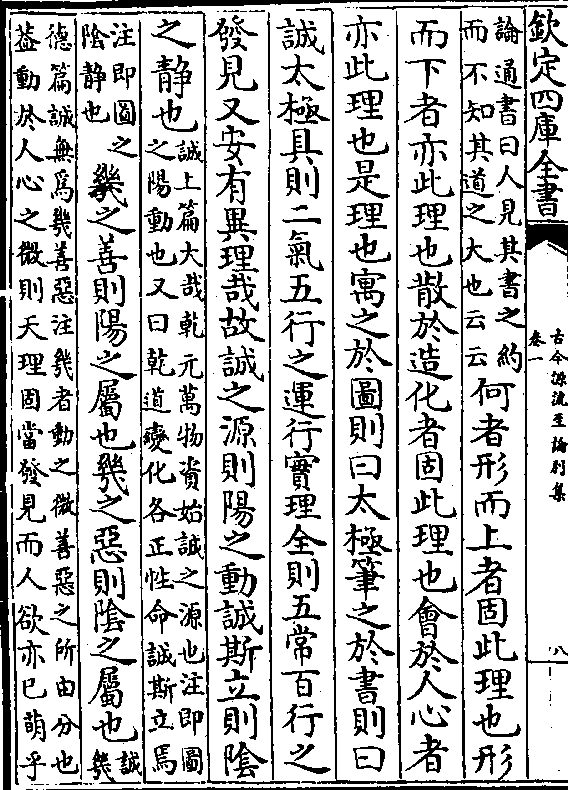 欽定四庫全書
古今源流至論別集
卷一
八
論通書曰人見其書之約
而不知其道之大也云云
何者形而上者固此理也形
而下者亦此理也散於造化者固此理也會於人心者
亦此理也是理也寓之於圖則曰太極筆之於書則曰
誠太極具則二氣五行之運行實理全則五常百行之
發見又安有異理哉故誠之源則陽之動誠斯立則陰
之静也
誠上篇大哉乾元萬物資始誠之源也注即圖
之陽動也又曰乾道變化各正性命誠斯立焉
注即圖之
陰静也
幾之善則陽之屬也幾之惡則陰之屬也
誠
幾
德篇誠無爲幾善惡注幾者動之微善惡之所由分也
葢動於人心之微則天理固當發見而人欲亦已萌乎